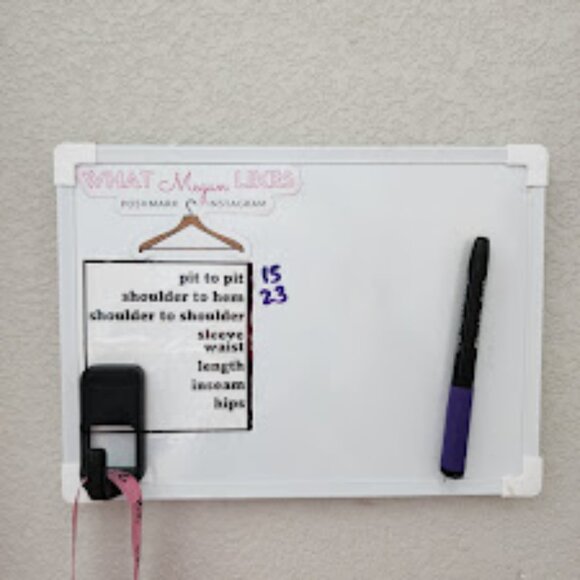 WHAT Megan LIKES
POSHMARK INSTAGRAM
pit to pit 15
shoulder to hem 23
shoulder to shoulder
sleeve
waist
length
inseam
hips